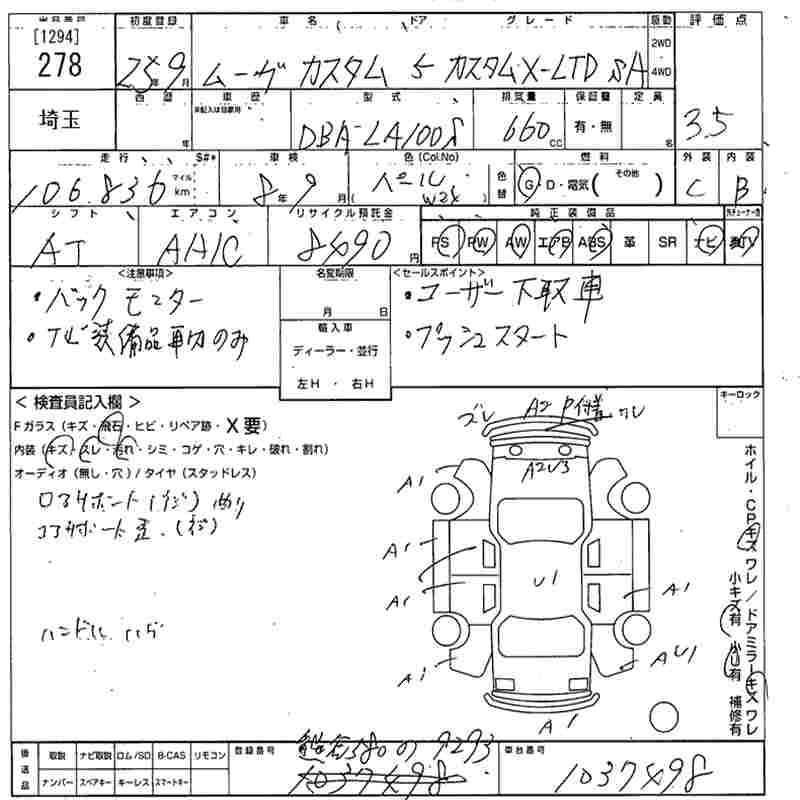 出品番号 初度登録 車名 ドア グレード 駆動 評価点
[1294]
278 25年9月 ムーヴ カスタム 5 カスタムX-LTD SA 2WD 4WD 3.5
埼玉 西暦 年 車歴 未記入は自家用 型式 排気量 保証書 定員
DBA-LA100S 660cc 有・無 名
走行 S#* 車検 色(Col.No) 色替 燃料 外装 内装
106.836 マイル km 8年9月 パール W24 G・D・電気( その他 ) C B
シフト エアコン リサイクル預託金 純正装備品
AT AAC 8490円 PS PW AW エアB ABS 革 SR ナビ TV
<注意事項> 名変期限 <セールスポイント>
・バックモニター 月 日 ・ユーザー下取車
・ナビ装備品車内のみ 輸入車 ・プッシュスタート
ディーラー・並行
左H・右H
<検査員記入欄> キーロック
Fガラス(キズ・飛石・ヒビ・リペア跡・X要)
内装(キズ・スレ・汚れ・シミ・コゲ・穴・キレ・破れ・割れ)
オーディオ(無し・穴)/タイヤ(スタッドレス)
コアサポート歪(ネジ)
ハンドル ハゲ
ズレ A2 P付着 ワレ
A2U3
A1
A1
A1 U1 A1
A1 AU1
A1
ホイル・CPキズ ワレ/ドアミラーキズ ワレ
小キズ有 小U有 補修有
後送品 取説 ナビ取説 ロム/SD B-CAS リモコン 登録番号 車台番号
ナンバー スペアキー キーレス スマートキー 580 の 9293
1037498 1037498